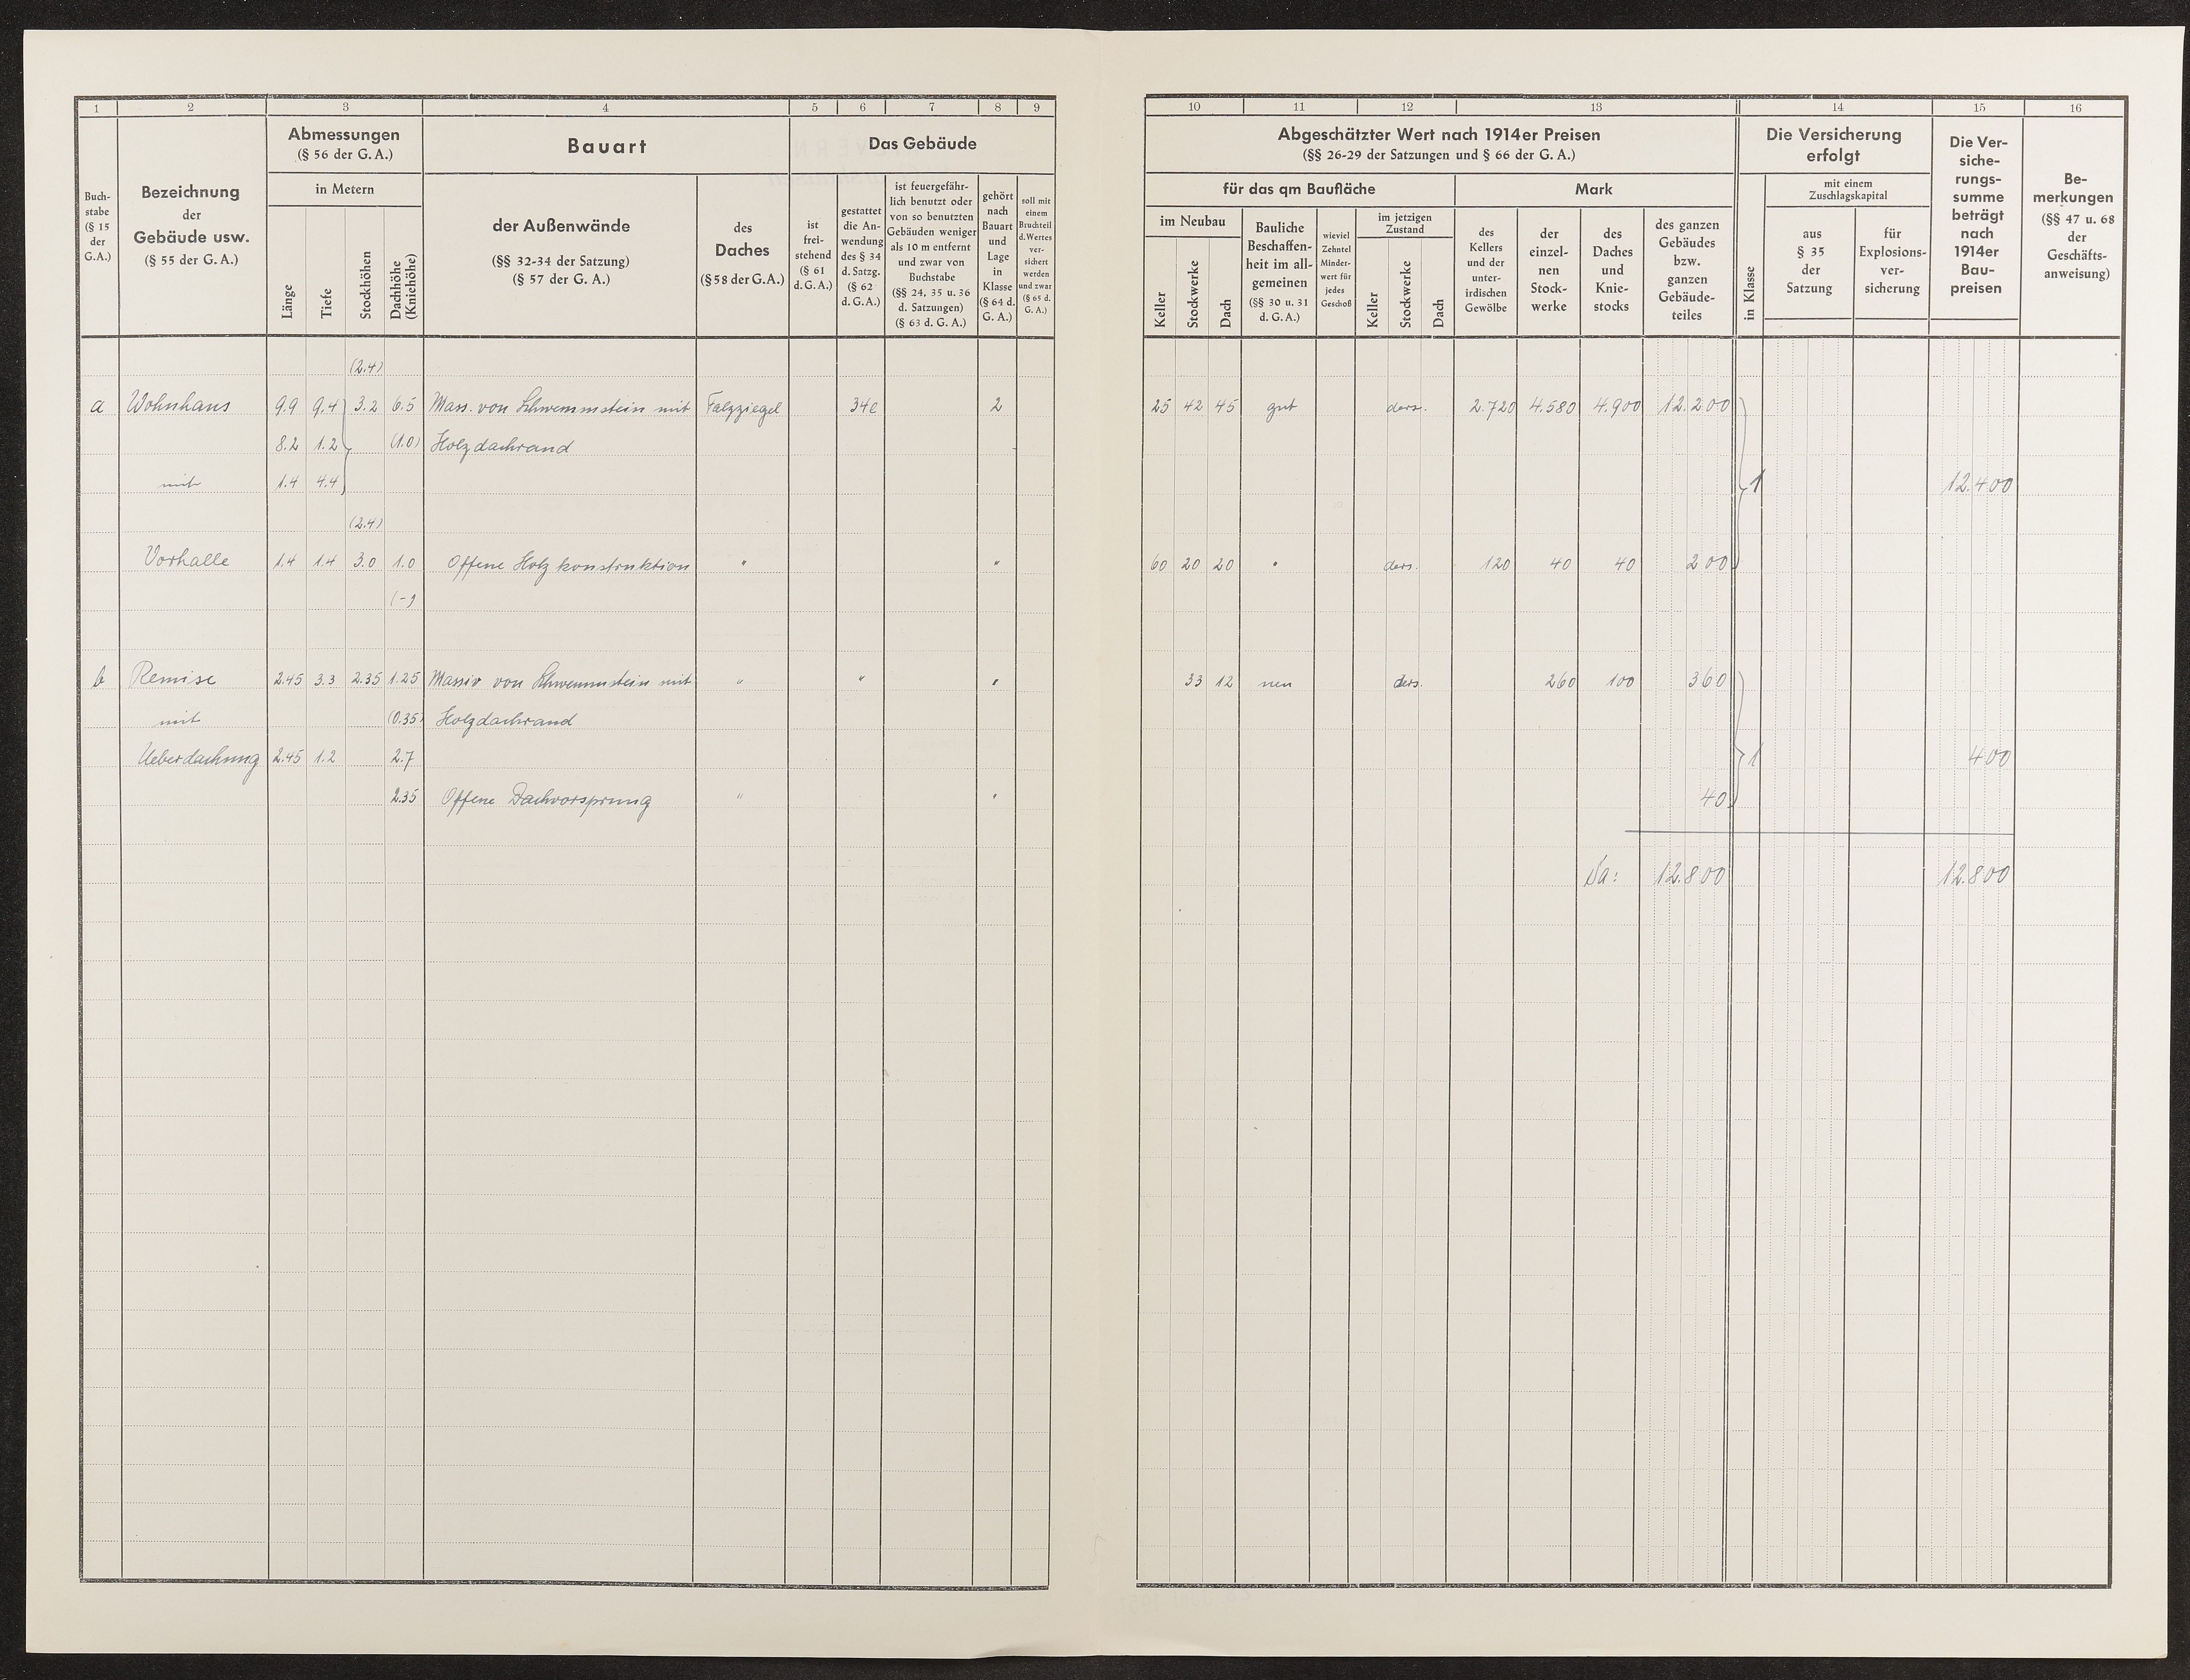 1 2 3 4 5 6 7 8 9 10 11 12 13 14 15 16
Buch-
stabe
(§ 15
der
G.A.)
Bezeichnung
der
Gebäude usw.
(§ 55 der G. A.)
Abmessungen
(§ 56 der G. A.)
in Metern
Länge
Tiefe
Stockhöhen
Dachhöhe
(Kniehöhe)
Bauart
der Außenwände
(§§ 32-34 der Satzung)
(§ 57 der G. A.)
des
Daches
(§ 58 der G.A.)
Das Gebäude
ist
frei-
stehend
(§ 61
d. G. A.)
gestattet
die An-
wendung
des § 34
d. Satzg.
(§ 62
d. G. A.)
ist feuergefähr-
lich benutzt oder
von so benutzten
Gebäuden weniger
als 10 m entfernt
und zwar von
Buchstabe
(§§ 24, 35 u. 36
d. Satzungen)
(§ 63 d. G. A.)
gehört
nach
Bauart
und
Lage
in
Klasse
(§ 64 d.
G. A.)
soll mit
einem
Bruchteil
d. Wertes
ver-
sichert
werden
und zwar
(§ 65 d.
G. A.)
Abgeschätzter Wert nach 1914er Preisen
(§§ 26-29 der Satzungen und § 66 der G. A.)
für das qm Baufläche
im Neubau
Keller
Stockwerke
Dach
Bauliche
Beschaffen-
heit im all-
gemeinen
(§§ 30 u. 31
d. G. A.)
wieviel
Zehntel
Minder-
wert für
jedes
Geschoß
im jetzigen
Zustand
Keller
Stockwerke
Dach
Mark
des
Kellers
und der
unter-
irdischen
Gewölbe
der
einzel-
nen
Stock-
werke
des
Daches
und
Knie-
stocks
des ganzen
Gebäudes
bzw.
ganzen
Gebäude-
teiles
Die Versicherung
erfolgt
in Klasse
mit einem
Zuschlagskapital
aus
§ 35
der
Satzung
für
Explosions-
ver-
sicherung
Die Ver-
siche-
rungs-
summe
beträgt
nach
1914er
Bau-
preisen
Be-
merkungen
(§§ 47 u. 68
der
Geschäfts-
anweisung)
(2.4)
a Wohnhaus 9.9 9.4 3.2 6.5 Mass. von Schwemmstein mit Falzziegel 34c 2 25 42 45 gut ders. 2.720 4.580 4.900 12.200
8.2 1.2 (1.0) Holzdachrand
mit 1.4 4.4 1 12.400
(2.4)
Vorhalle 1.4 1.4 3.0 1.0 Offene Holzkonstruktion " " 60 20 20 " ders. 120 40 40 200
(-)
b Remise 2.45 3.3 2.35 1.25 Massiv von Schwemmstein mit " " " 33 12 neu ders. 260 100 360
mit (0.35) Holzdachrand
Ueberdachung 2.45 1.2 2.7 1 400
2.35 Offene Dachvorsprung " " 40
Sa: 12.800 12.800